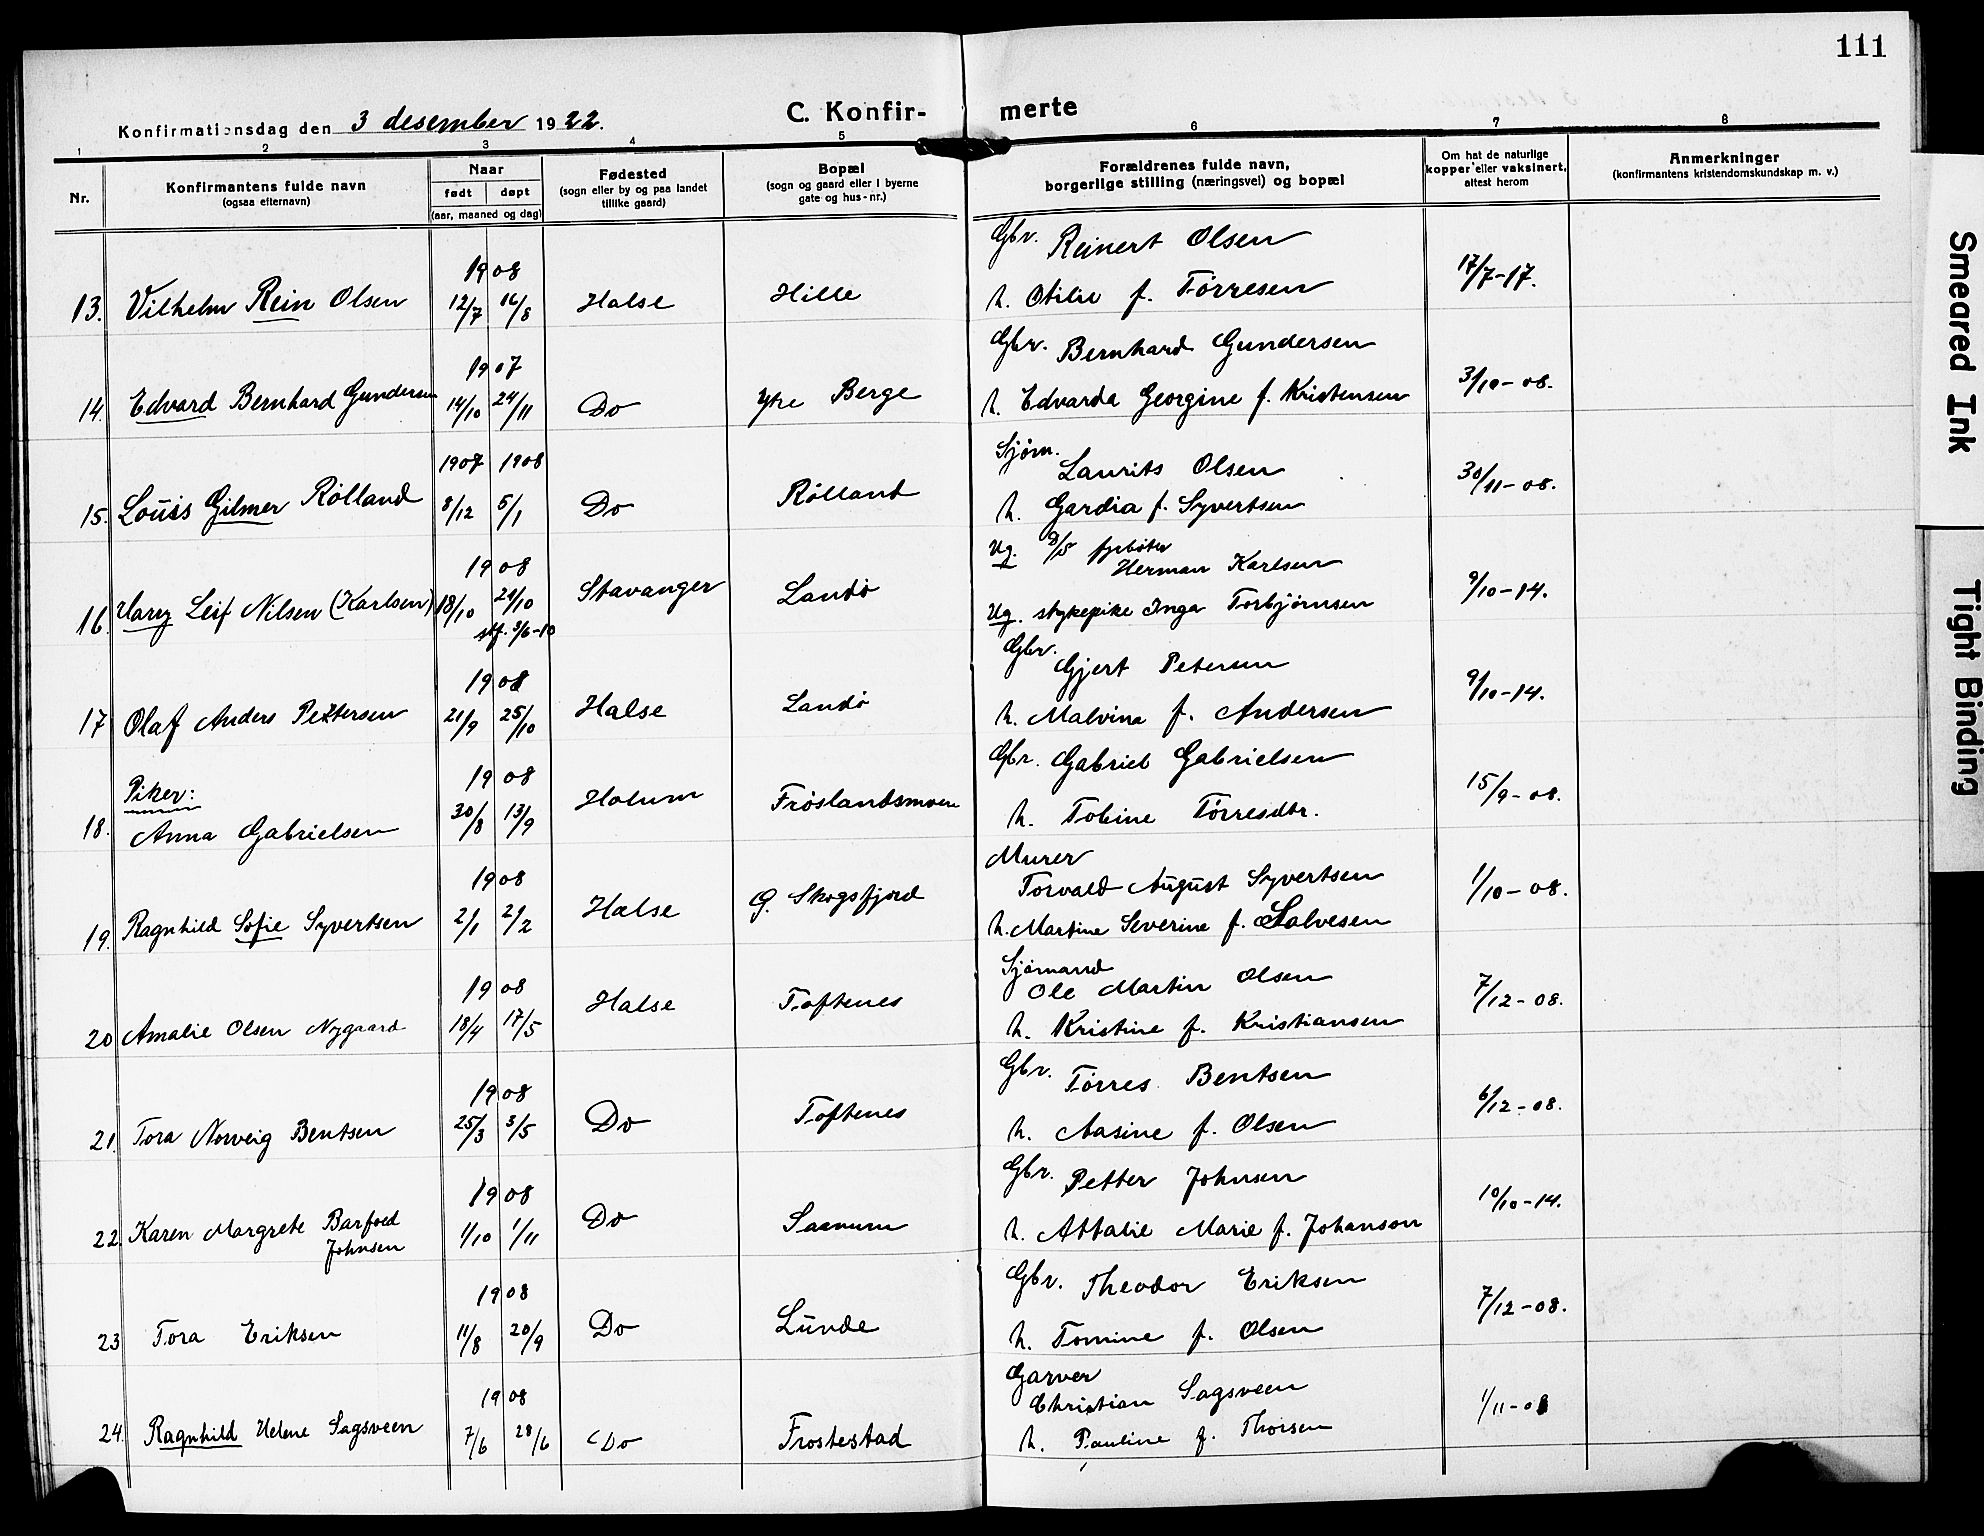 111
Konfirmationsdag den 3 desember 1922.
C. Konfir- merte
1 2 3 4 5 6 7 8
Nr.
Konfirmantens fulde navn
(ogsaa efternavn)
Naar
født døpt
(aar, maaned og dag)
Fødested
(sogn eller by og paa landet
tillike gaard)
Bopæl
(sogn og gaard eller i byerne
gate og hus-nr.)
Forældrenes fulde navn,
borgerlige stilling (næringsvei) og bopæl
Om hat de naturlige
kopper eller vaksinert,
attest herom
Anmerkninger
(konfirmantens kristendomskundskap m. v.)
Gbr. Reinert Olsen
1908
13. Vilhelm Rein Olsen 12/7 16/8 Halse Hille h. Otilie f. Tørresen 17/7-17.
Gbr. Bernhard Gundersen
1907
14. Edvard Bernhard Gundersen 14/10 24/11 Do Ytre Berge h. Edvarda Georgine f. Kristensen 3/10-08.
Sjøm. Laurits Olsen
1907 1908
15. Louis Gilmer Rølland 8/12 5/1 Do Rølland h. Gardia f. Syvertsen 30/11-08.
Ug. 8/5 fyrbøter
Herman Karlsen
1908
16. Harry Leif Nilsen (Karlsen) 18/10 29/10 Stavanger Landø Ug. strykepike Inga Torbjørnsen 9/10-14.
stf. 3/6-10
Gbr. Gjert Petersen
1908
17 Olaf Anders Pettersen 21/9 25/10 Halse Landø h. Malvina f. Andersen 9/10-14.
Gbr. Gabriel Gabrielsen
Piker: 1908
18. Anna Gabrielsen 30/8 13/9 Holum Frøslandsmoen h. Tobine Tørresdtr. 15/9-08.
Murer
Torvald August Syvertsen
1908
19. Ragnhild Sofie Syvertsen 2/1 2/2 Halse G. Skogsfjord h. Martine Severine f. Salvesen 1/10-08.
Sjømand
Ole Martin Olsen
1908
20 Amalie Olsen Nygaard 18/4 17/5 Halse Toftenes h. Kristine f. Kristiansen 7/12-08.
Gbr. Tørres Bentsen
1908
21. Tora Norveig Bentsen 25/3 3/5 Do Toftenes h. Aasine f. Olsen 6/12-08.
Gbr. Petter Johnsen
1908
22. Karen Margrete Barfoed 1/10 1/11 Do Saanum h. Attalie Marie f. Johanson 10/10-14.
Johnsen
Gbr. Theodor Eriksen
1908
23 Tora Eriksen 11/8 20/9 Do Lunde h. Tomine f. Olsen 7/12-08.
Garver
Christian Sagsveen
1908
24. Ragnhild Helene Sagsveen 7/6 28/6 Do Frostestad h. Pauline f. Thorsen 1/11-08
Smeared Ink
Tight Binding